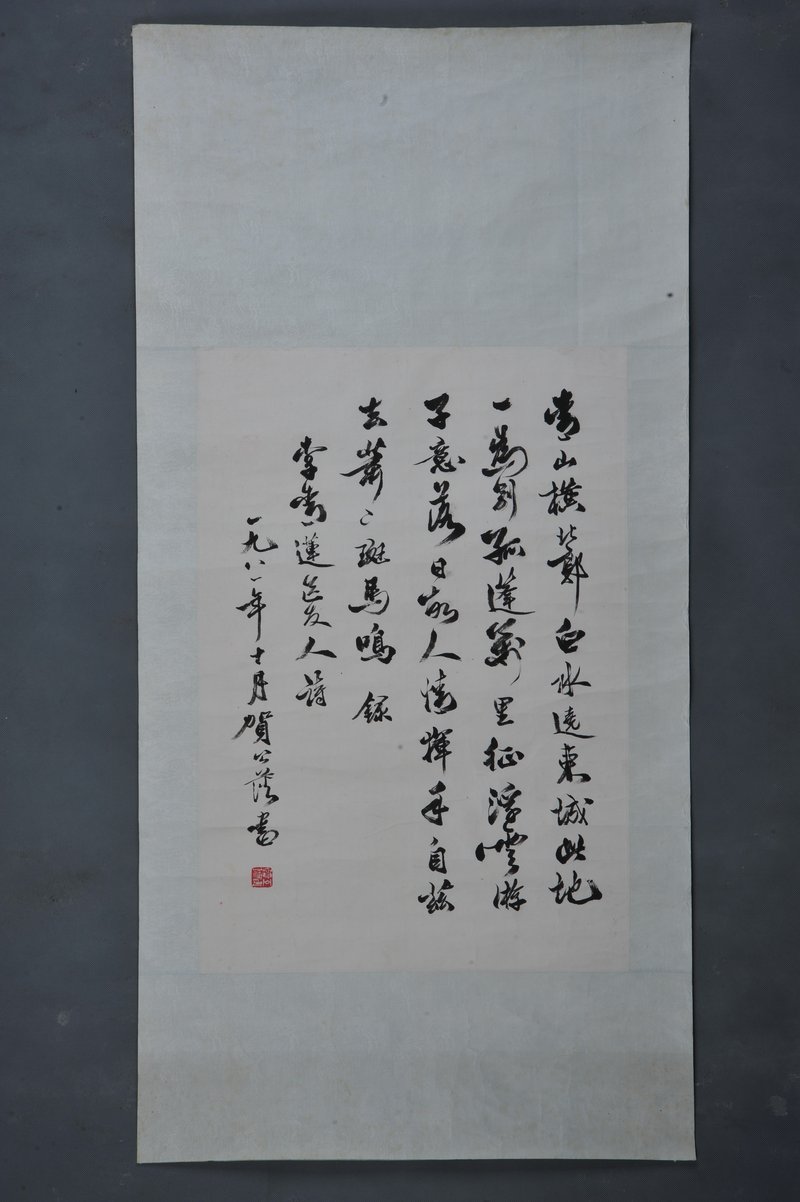 青山横北郭白水遶東城此地
一為別孤蓬萬里征浮雲游
子意落日故人情揮手自茲
去蕭〻斑馬鳴 録
李青蓮送友人詩
一九八一年十月賀公書